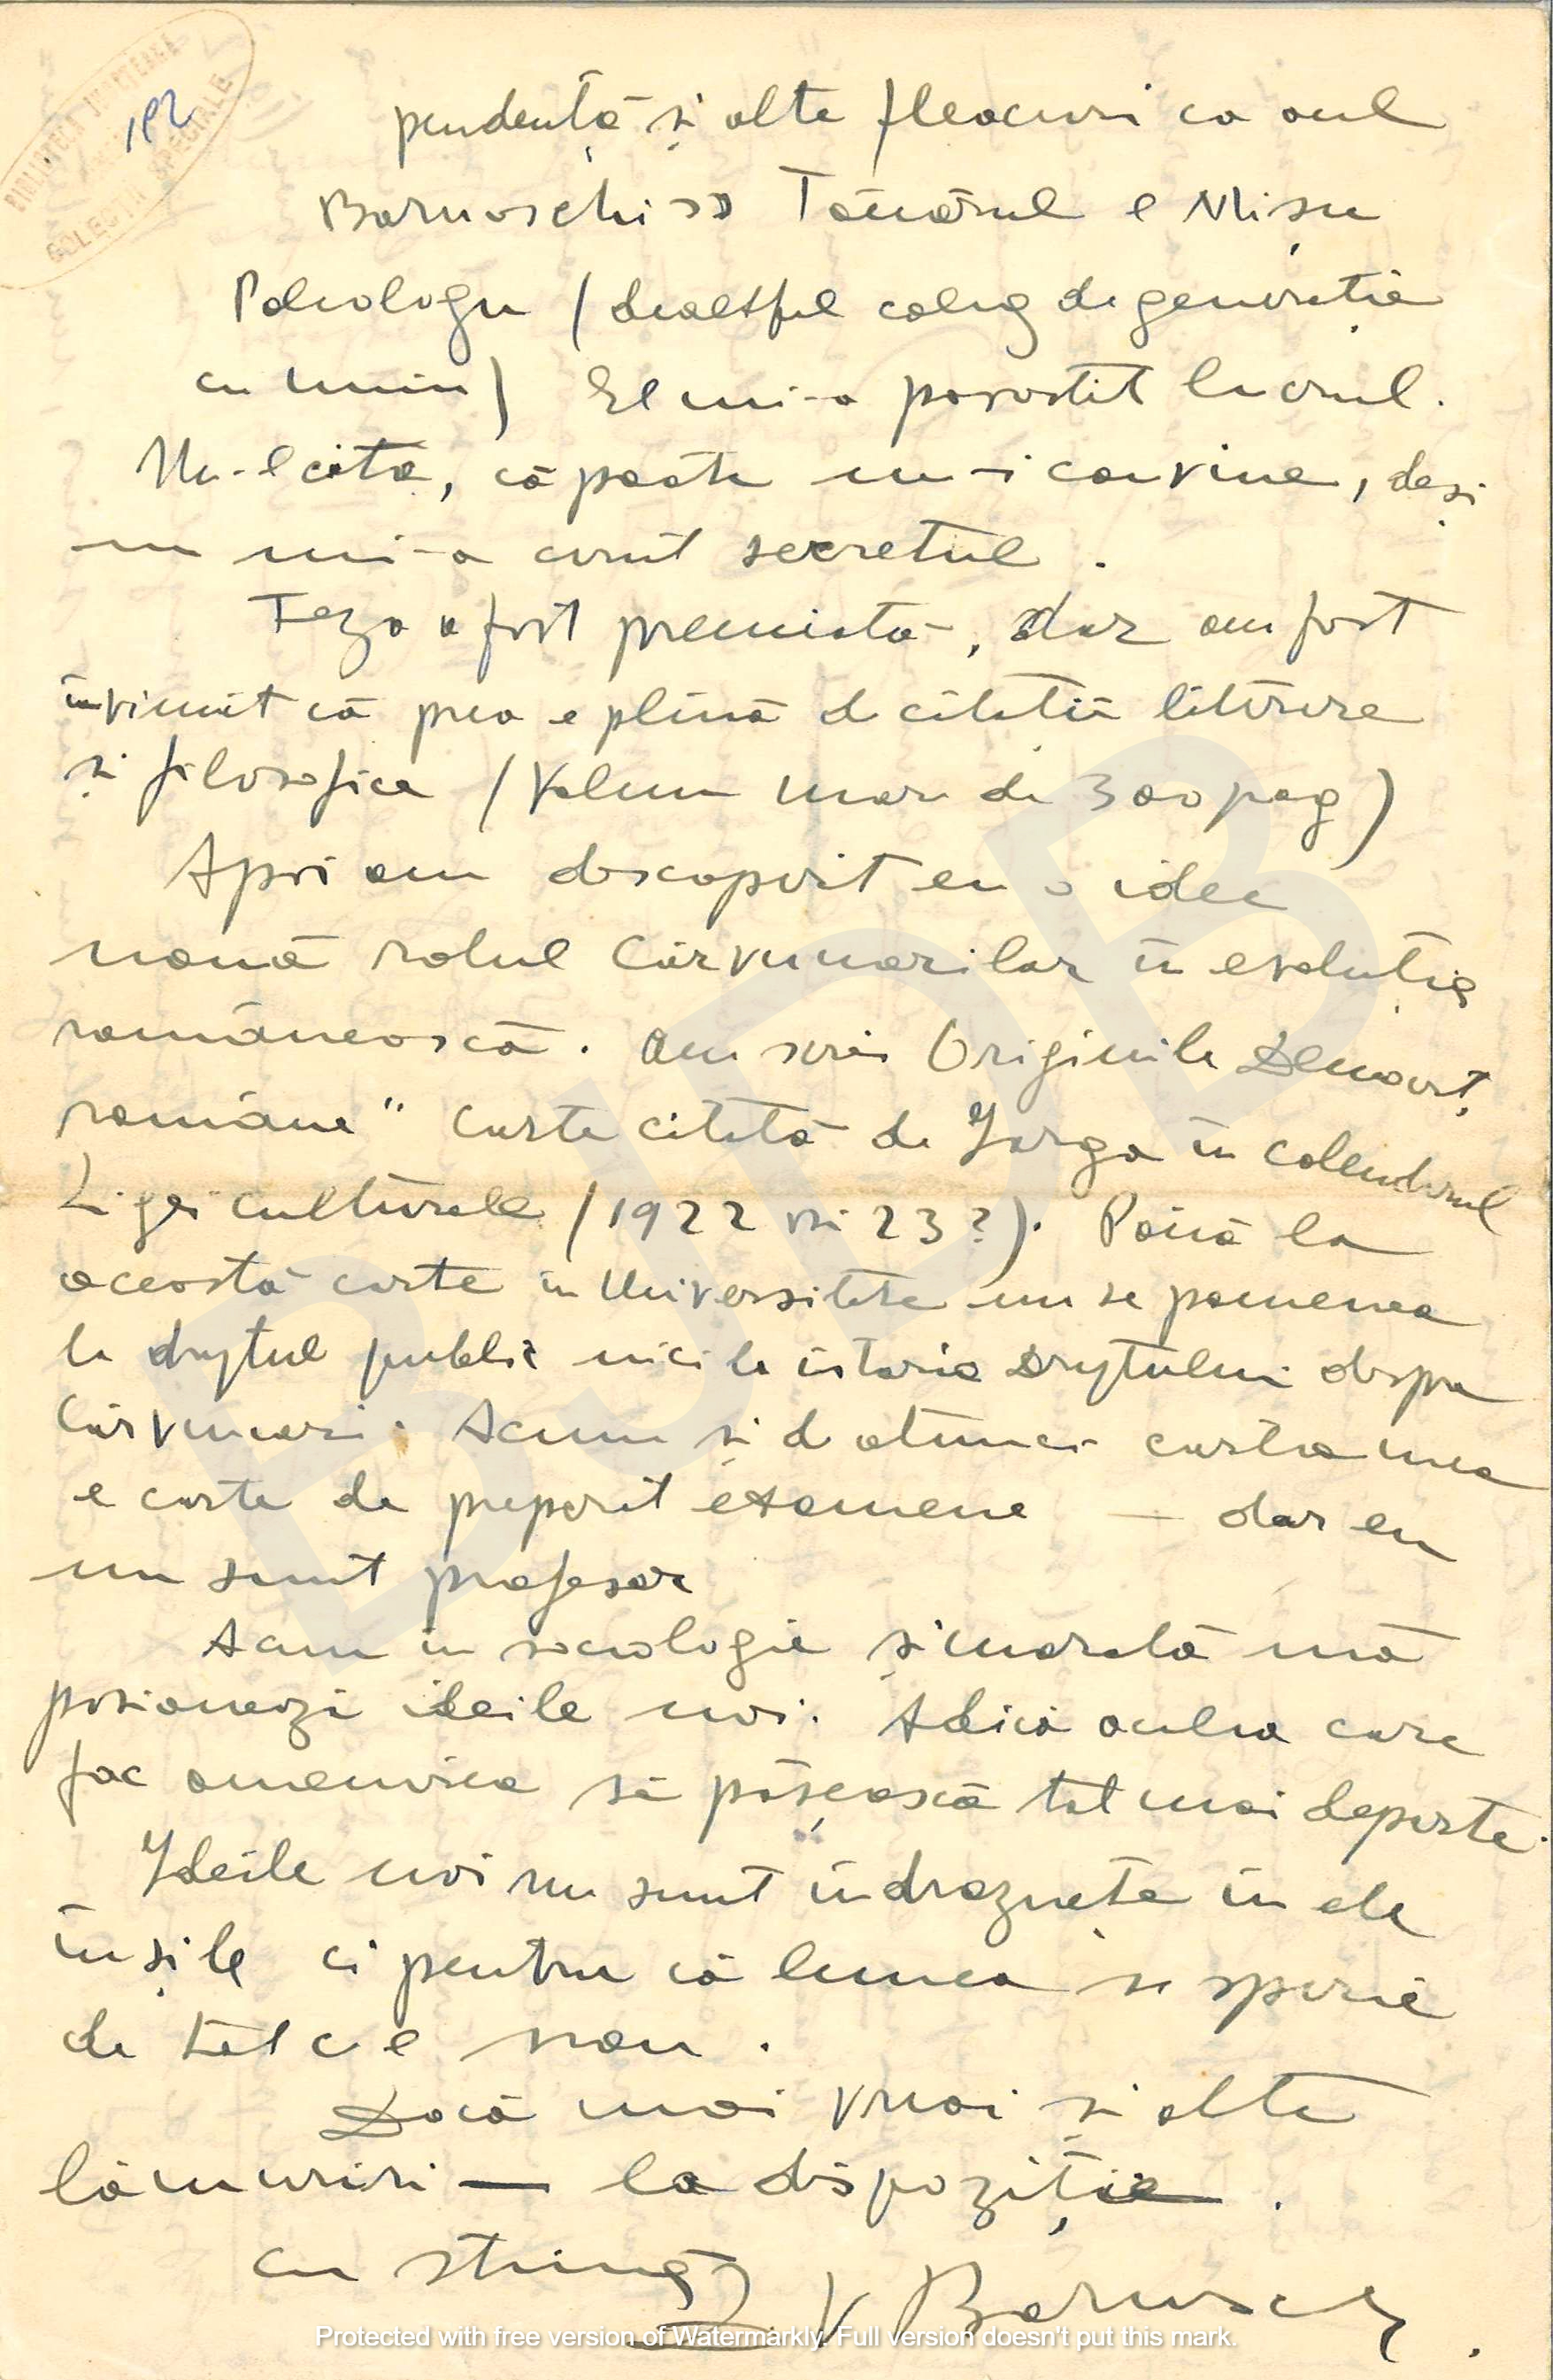 BIBLIOTECA JUDEȚEANĂ
COLECȚII SPECIALE
pendență și alte fleacuri ca aul
Barnoschi >> Tânărul e Mișu
Paleologu (dealtfel coleg de generație
cu mine) El mi-a povestit lucrul.
Nu-l cita, că poate nu-i convine, deși
nu mi-a cerut secretul.
Teza a fost premiată, dar am fost
învinuit că prea e plină de citații literare
și filosofice (Volum mare de 300 pag)
Apoi am descoperit eu o idee
nouă rolul Cărvunarilor în evoluția
românească. Am scris Originile Democrț.
române" carte citată de Iorga în calendarul
Ligei culturale (1922 sau 23?). Până la
această carte în Universitate nu se pomenea
la dreptul public nici la istoria dreptului despre
Cărvunari. Acum și de atunci cartea mea
e carte de preparat examene — dar eu
nu sunt profesor
Acum în sociologie și morală mă
pasionează ideile noi. Adică acelea care
fac omenirea să pășească tot mai departe.
Ideile noi nu sunt îndraznețe în ele
însile ci pentru că lumea se sperie
de tot ce e nou.
Dacă mai vreai și alte
lămuriri — la dispoziție.
cu stimă
V Barnoschi.
BJDB
Protected with free version of Watermarkly. Full version doesn't put this mark.